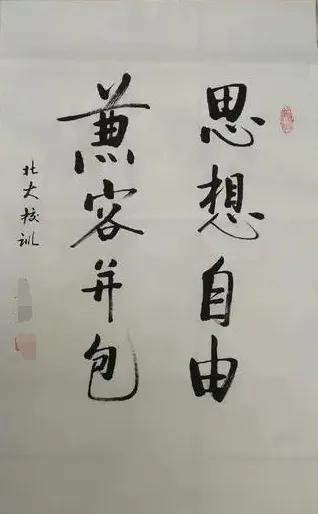 思想自由
兼容并包
北大校训